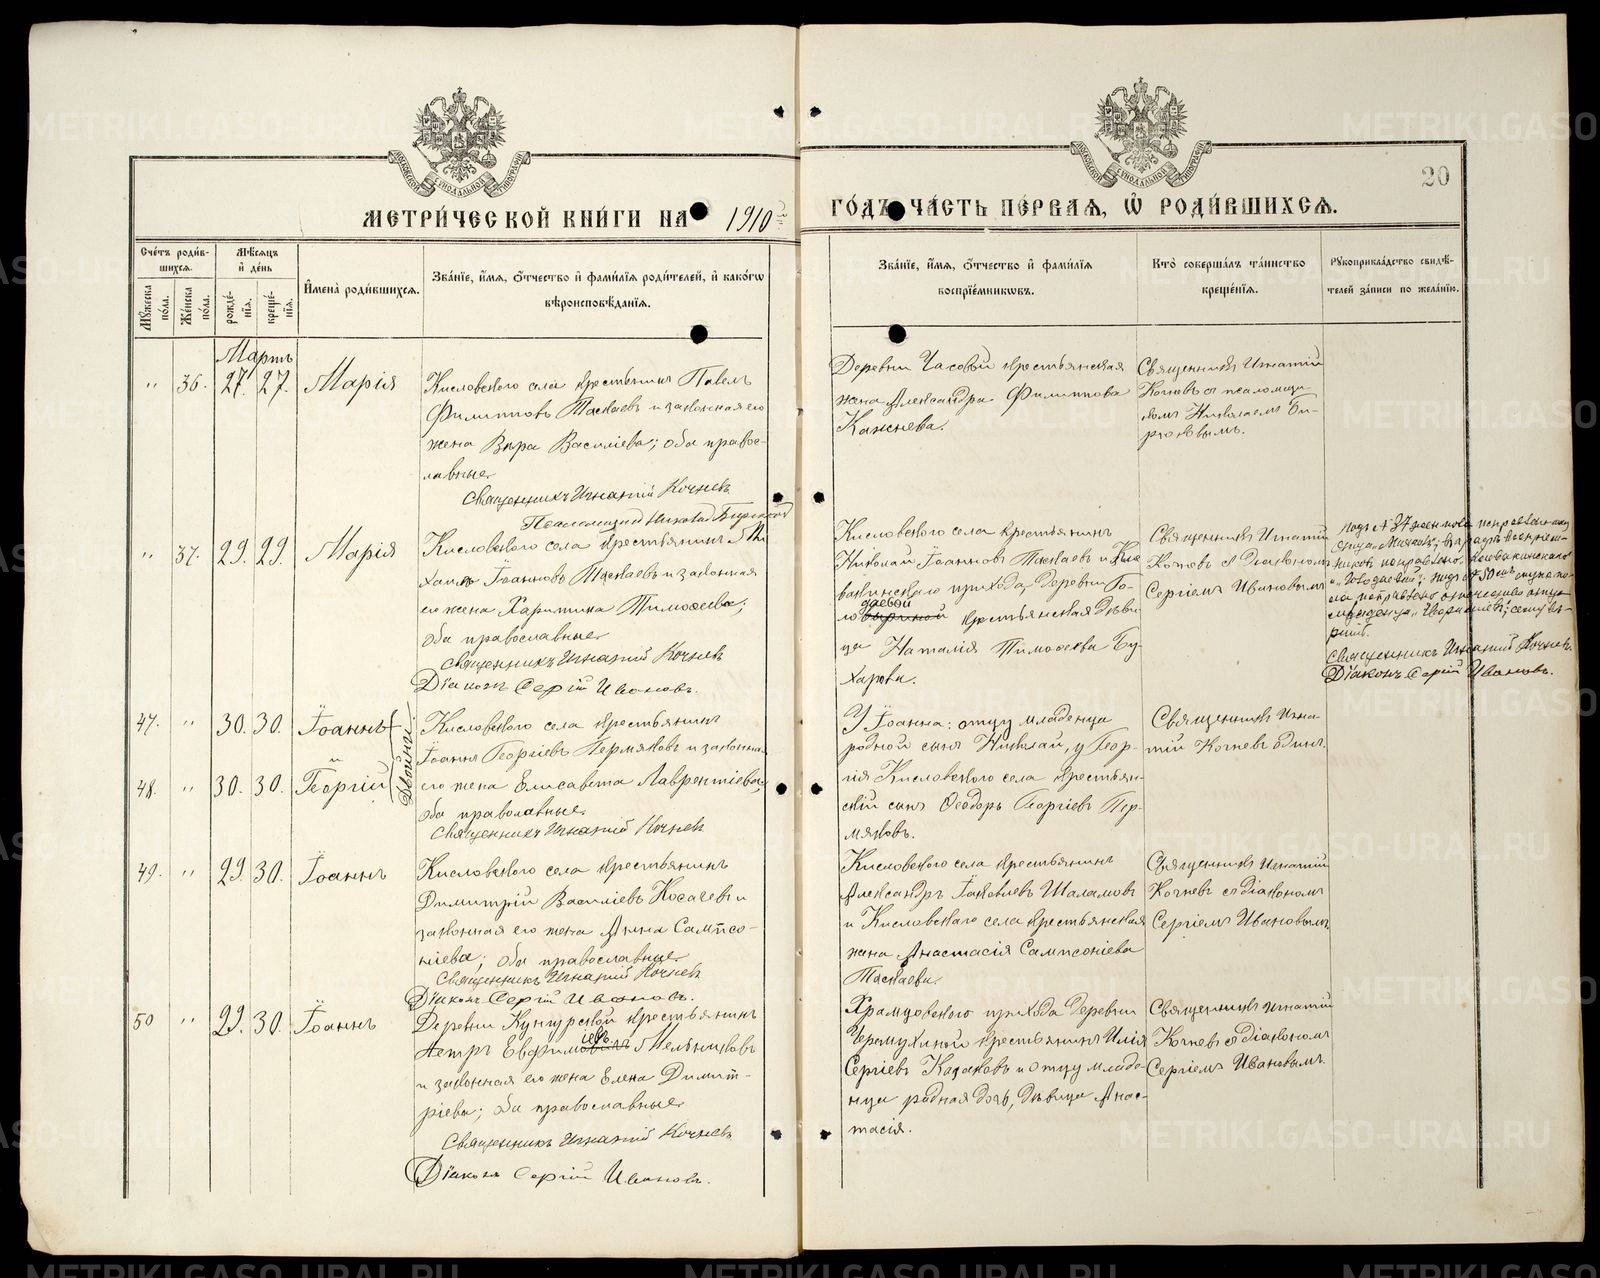 МЕТРИ́ЧЕСКОЙ КНИ́ГИ НА 1910 й
ГО́ДЪ ЧА́СТЬ ПЕ́РВАѦ, Ѡ҆ РОДИ́ВШИХСѦ.
20
Сче́тъ роди́в-
шихсѧ.
Мѣ́сѧцъ
и҆ де́нь
Мꙋ́жеска по́ла.
Же́нска по́ла.
рожде́-
нїѧ.
креще́-
нїѧ.
И҆мена̀ роди́вшихсѧ.
Зва́нїе, и҆́мѧ, ѻ҆́тчество и҆ фами́лїѧ роди́телей, и҆ како́гѡ
вѣроисповѣ́данїѧ.
Зва́нїе, и҆́мѧ, ѻ҆́тчество и҆ фами́лїѧ
воспрїе́мникѡвъ.
Кто̀ соверша́лъ та́инство
креще́нїѧ.
Рꙋкоприкла́дство свидѣ́-
телей за́писи по жела́нїю.
Мартъ
" 36. 27. 27. Марія
Кисловскаго села крестьянинъ Павелъ
Филипповъ Таскаевъ и законная его
жена Вѣра Василіева; оба правос-
лавные
Священникъ Игнатій Кочневъ
Псаломщикъ Николай Бирюковъ
Деревни Часовой крестьянская
жена Александра Филиппова
Кажнева.
Священникъ Игнатій
Кочневъ съ псаломщи-
комъ Николаемъ Би-
рюковымъ.
" 37. 29. 29. Марія
Кисловскаго села крестьянинъ Ми
хаилъ Іоанновъ Таскаевъ и законная
его жена Харитина Тимоѳеева;
оба православные
Священникъ Игнатій Кочневъ
Діаконъ Сергій Ивановъ.
Кисловскаго села крестьянинъ
Николай Іоанновъ Таскаевъ и Кле
вакинскаго прихода, деревни Го-
лодаевой крестьянская дѣви
ца Наталія Тимоѳеева Бу-
харова.
Священникъ Игнатій
Кочневъ съ діакономъ
Сергіемъ Ивановымъ.
Священникъ Игнатій Кочневъ.
Діаконъ Сергій Ивановъ.
47. " 30. 30. Іоаннъ
и
48. " 30. 30. Георгій
Двойни:
Кисловскаго села крестьянинъ
Іоаннъ Георгіевъ Пермяковъ и законная
его жена Елисавета Лаврентіева;
оба православные
Священникъ Игнатій Кочневъ
У Іоанна: отцу младенца
родной сынъ Николай, у Геор-
гія Кисловскаго села крестьян-
скій сынъ Ѳеодоръ Георгіевъ Пер-
мяковъ.
Священникъ Игна
тій Кочневъ одинъ.
49. " 29. 30. Іоаннъ
Кисловскаго села крестьянинъ
Димитрій Василіевъ Косачевъ и
законная его жена Анна Сампсо-
ніева; оба православные
Священникъ Игнатій Кочневъ
Діаконъ Сергій Ивановъ.
Кисловскаго села крестьянинъ
Александръ Іаковлевъ Шаламовъ
и Кисловскаго села крестьянская
жена Анастасія Сампсоніева
Таскаева.
Священникъ Игнатій
Кочневъ съ діакономъ
Сергіемъ Ивановымъ.
50 " 29. 30. Іоаннъ
Деревни Кунгурской крестьянинъ
Петръ Евфиміевъ Мельниковъ
и законная его жена Елена Димит-
ріева; оба православные
Священникъ Игнатій Кочневъ
Діаконъ Сергій Ивановъ.
Храмцовскаго прихода деревни
Черемухиной крестьянинъ Илія
Сергіевъ Казаковъ и отцу младе-
нца родная дочь, дѣвица Анас-
тасія.
Священникъ Игнатій
Кочневъ съ діакономъ
Сергіемъ Ивановымъ.
METRIKI.GASO-URAL.RU